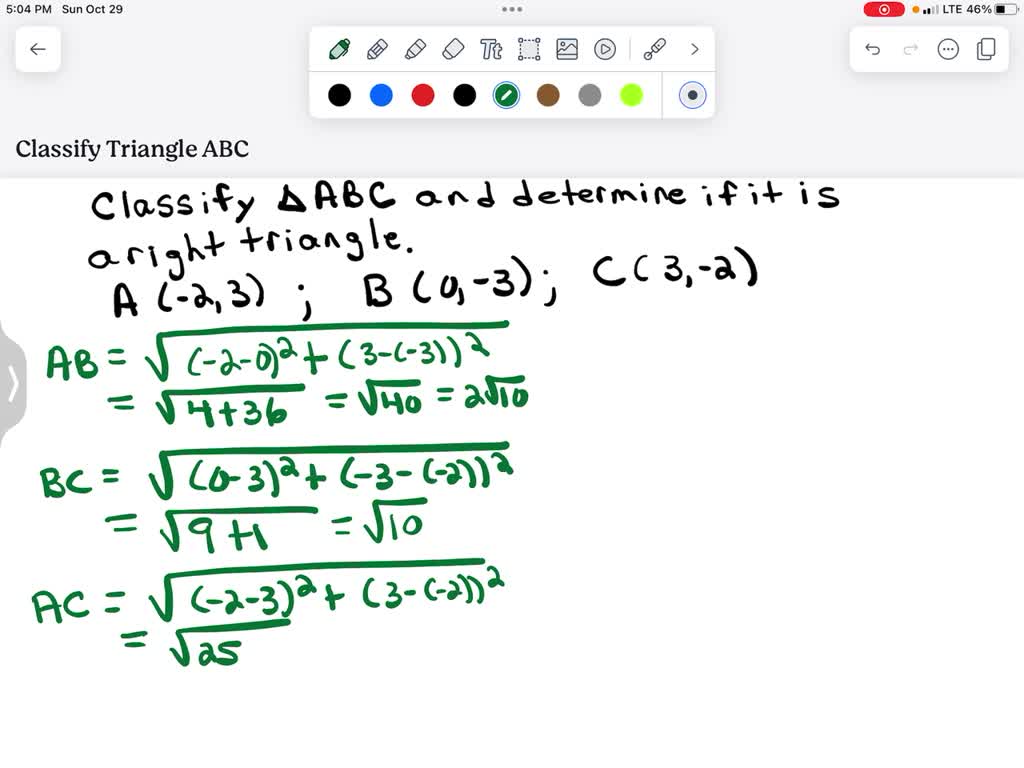 5:04 PM Sun Oct 29
LTE 46%
Tt
Classify Triangle ABC
Classify ΔABC and determine if it is
a right triangle.
A (-2,3) ; B (0,-3); C(3,-2)
AB = √((-2-0)² + (3-(-3))²
= √4+36 = √40 = 2√10
BC = √(0-3)² + (-3-(-2))²
= √9+1 = √10
AC = √(-2-3)² + (3-(-2))²
= √25